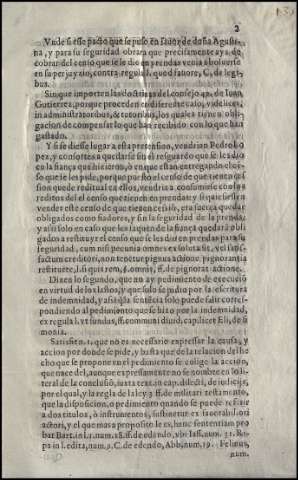 2
Y nde si esse pacto que se puso en fauor de doña Agusti-
na, y para su seguridad obrara que precisamente aya de
cobrar del censo que se le dio en prendas venia a boluerse
en su perjuyzio, contra regula l. quod fauore, C. de legi-
bus.
Sin que importen las doctrinas del consejo 40. de Iuan
Gutierrez, porque proceden en diferente caso, videlicet,
in administratoribus, & tutoribus, los quales tienen o-
bligacion de compensar lo que han recibido con lo que han
gastado.
Y si se diesse lugar a esta pretension, vendrian Pedro Lo-
pez, y consortes a quedarse sin el resguardo que se les dio
en la fiança que hizieron, o en que estan, entregando el cen-
so que se les pide, porque puesto el censo de que tienen cef-
sion quede reditual en ellos, vendria a consumirse con los
reditos del el censo que tienen en prendas: y si quisiessen
vender este censo de que tienen cession, era fuerça quedar
obligados como fiadores, y sin la seguridad de la prenda,
y assi solo en caso que les saquen de la fiança quedarà obli-
gados a restituyr el censo que se les dio en prendas para su
seguridad, cum nisi pecunia omnes exsoluta sit, vel satis-
factum creditori, non tenetur pignus actione pignoratitia
restituere, l. si quis rem, §. omnis, ff. de pignorat. actione.
Dizen lo segundo, que en su pedimiento de execució
en virtud de los lastos, y que solo se pidio por la escritura
de indemnidad, y assi q̃ la sentēcia solo puede salir corres-
pondiendo al pedimiento que se hizo por la indemnidad,
ex regula l. vt fundus, ff. communi diuid. cap. licet Eli, de si-
monia.
Satisfit. 1. que no es necessario expressar la causa, y
accion por donde se pide, y basta que de la relacion del he
cho que se propone en el pedimiento se colige la accion,
que nace del, aunque expressamente no se nombre en lo li-
teral de la conclusiō, iuxta text. in cap. dilecti, de iudicijs,
por el qual, y la regla de la ley 3. ff. de militari testament.
que la disposicion, o pedimiento quando se puede referir
a dos titulos, ò instrumentos, sustinetur ex fauorabiliori
actori, y el que mas a proposito le es, hanc sententiam pro
bat Bart. in l. 1. num. 18. ff. de edendo, vbi Ias. num. 31. Ros
in l. edita, num. 9. C. de edendo, Abb. num. 19. Felinus,
num.